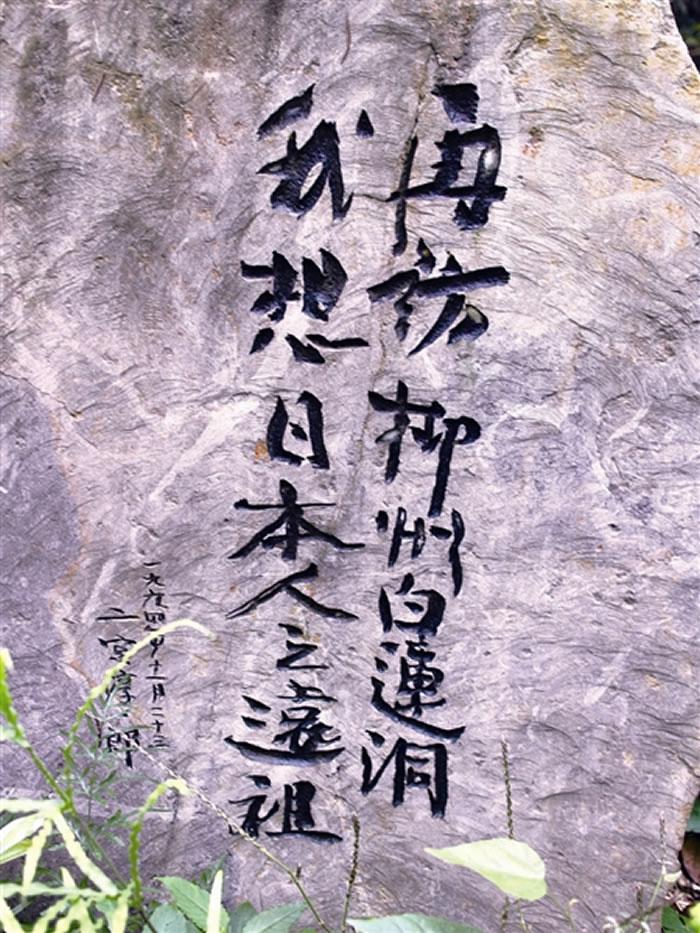 再訪柳州白蓮洞
我想日本人之遠祖
一九九四年十一月二十三
二宮淳一郎